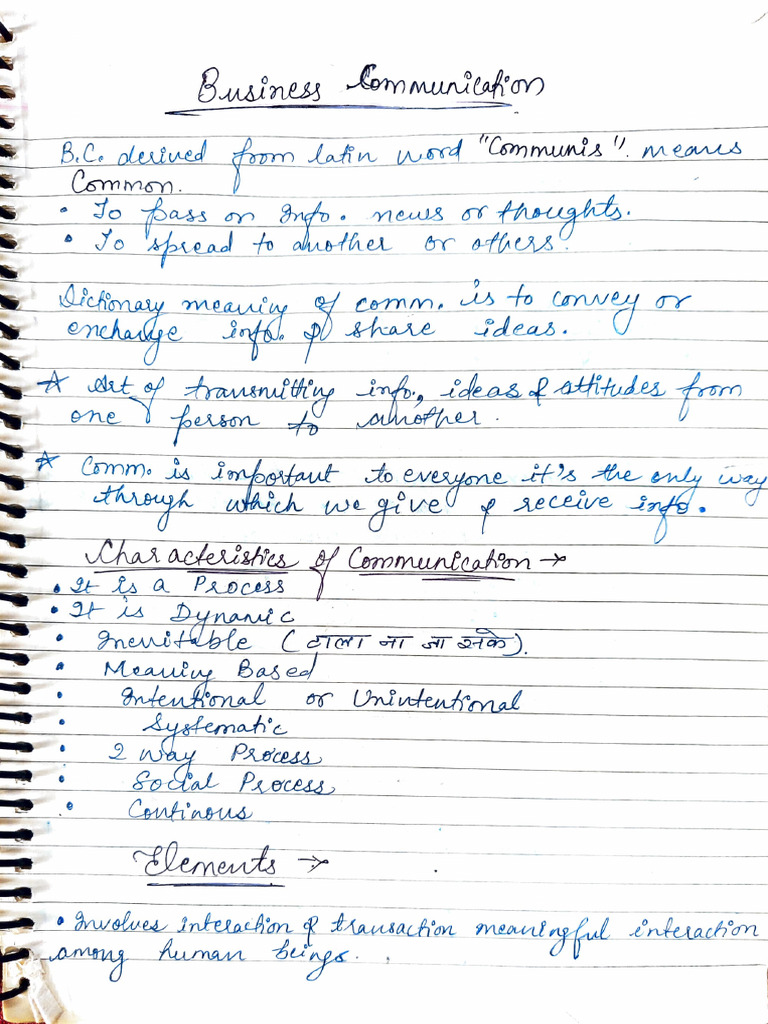 Business Communication
B.C. derived from latin word "Communis". means
Common.
• To pass on Info. news or thoughts.
• To spread to another or others.
Dictionary meaning of comm. is to convey or
enchange info. & share ideas.
☆ Art of transmitting info., ideas & attitudes from
one person to another.
☆ Comm. is important to everyone it's the only way
through which we give & receive info.
Characteristics of Communication →
• It is a Process
• It is Dynamic
• Inevitable (टाला ना जा सके).
• Meaning Based
• Intentional or Unintentional
• Systematic
• 2 way Process
• Social Process
• Continous
Elements →
• Involves interaction & transaction meaningful interaction
among human beings.